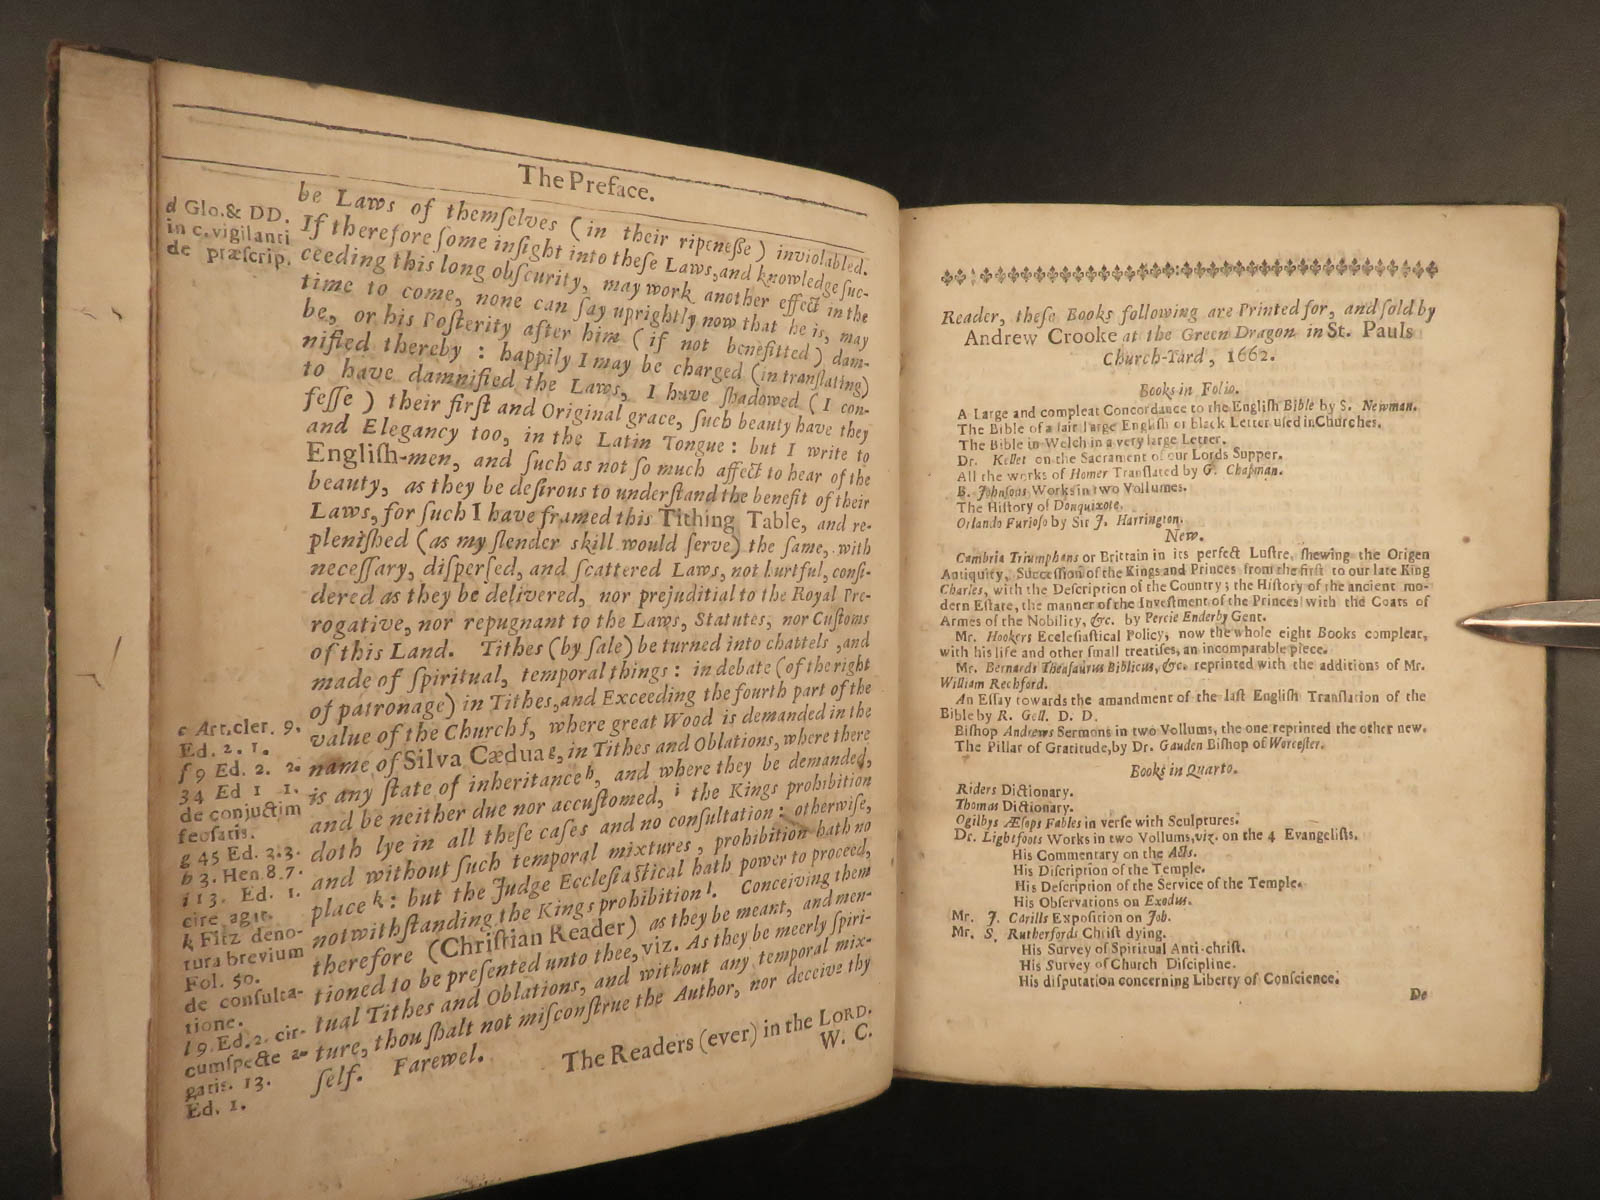 The Preface.
d Glo.& DD.
in c.vigilanti
de præscrip.
be Laws of themſelves (in their ripeneſſe) inviolabled.
If therefore ſome inſight into theſe Laws, and knowledge ſuc-
ceeding this long obſcurity, may work another effect in the
time to come, none can ſay uprightly now that he is, may
be, or his Poſterity after him (if not benefitted) dam-
nified thereby : happily I may be charged (in tranſlating)
to have damnified the Laws, I have ſhadowed (I con-
feſſe) their firſt and Original grace, ſuch beauty have they
and Elegancy too, in the Latin Tongue: but I write to
Engliſh-men, and ſuch as not ſo much affect to hear of the
beauty, as they be deſirous to underſtand the benefit of their
Laws, for ſuch I have framed this Tithing Table, and re-
pleniſhed (as my ſlender skill would ſerve) the ſame, with
neceſſary, diſperſed, and ſcattered Laws, not hurtful, conſi-
dered as they be delivered, nor prejuditial to the Royal Pre-
rogative, nor repugnant to the Laws, Statutes, nor Cuſtoms
of this Land. Tithes (by ſale) be turned into chattels, and
made of ſpiritual, temporal things: in debate (of the right
of patronage) in Tithes, and Exceeding the fourth part of the
value of the Church f, where great Wood is demanded in the
name of Silva Cædua g, in Tithes and Oblations, where there
is any ſtate of inheritance h, and where they be demanded,
and be neither due nor accuſtomed, i the Kings prohibition
doth lye in all theſe caſes and no conſultation: otherwiſe,
and without ſuch temporal mixtures, prohibition hath no
place k: but the Judge Eccleſiaſtical hath power to proceed,
notwithſtanding the Kings prohibition l. Conceiving them
therefore (Chriſtian Reader) as they be meant, and men-
tioned to be preſented unto thee, viz. As they be meerly ſpiri-
tual Tithes and Oblations, and without any temporal mix-
ture, thou ſhalt not miſconſtrue the Author, nor deceive thy
ſelf. Farewel.
The Readers (ever) in the LORD.
W. C.
e Art.cler. 9.
Ed. 2. 1.
f 9 Ed. 2. 2.
34 Ed 1 1.
de conjuctim
feofatis.
g 45 Ed. 3.3.
h 3. Hen 8 7.
i 13. Ed. 1.
circ agat.
k Fitz deno-
tura brevium
Fol. 50.
de conſulta-
tione.
l 9.Ed.2. cir-
cumſpecte a-
gatis. 13.
Ed. 1.
Reader, theſe Books following are Printed for, and ſold by
Andrew Crooke at the Green Dragon in St. Pauls
Church-Yard, 1662.
Books in Folio.
A Large and compleat Concordance to the Engliſh Bible by S. Newman.
The Bible of a fair large Engliſh or black Letter uſed in Churches.
The Bible in Welch in a very large Letter.
Dr. Kellet on the Sacrament of our Lords Supper.
All the works of Homer Tranſlated by G. Chapman.
B. Johnſons Works in two Vollumes.
The Hiſtory of Donquixote.
Orlando Furioſo by Sir J. Harrington.
New.
Cambria Triumphans or Brittain in its perfect Luſtre, ſhewing the Origen
Antiquity, Succeſſion of the Kings and Princes from the firſt to our late King
Charles, with the Deſcription of the Country; the Hiſtory of the ancient mo-
dern Eſtate, the manner of the Inveſtment of the Princes with the Coats of
Armes of the Nobility, &c. by Percie Enderby Gent.
Mr. Hookers Eccleſiaſtical Policy, now the whole eight Books compleat,
with his life and other ſmall treatiſes, an incomparable piece.
Mr. Bernards Theaſaurus Biblicus, &c. reprinted with the additions of Mr.
William Rechford.
An Eſſay towards the amandment of the laſt Engliſh Tranſlation of the
Bible by R. Gell. D. D.
Biſhop Andrews Sermons in two Vollums, the one reprinted the other new.
The Pillar of Gratitude, by Dr. Gauden Biſhop of Worceſter.
Books in Quarto.
Riders Dictionary.
Thomas Dictionary.
Ogilbys Æſops Fables in verſe with Sculptures.
Dr. Lightfoots Works in two Vollums, viz. on the 4 Evangeliſts.
His Commentary on the Acts.
His Diſcription of the Temple.
His Deſcription of the Service of the Temple.
His Obſervations on Exodus.
Mr. J. Carills Expoſition on Job.
Mr. S. Rutherfords Chriſt dying.
His Survey of Spiritual Anti-chriſt.
His Survey of Church Diſcipline.
His diſputation concerning Liberty of Conſcience.
De